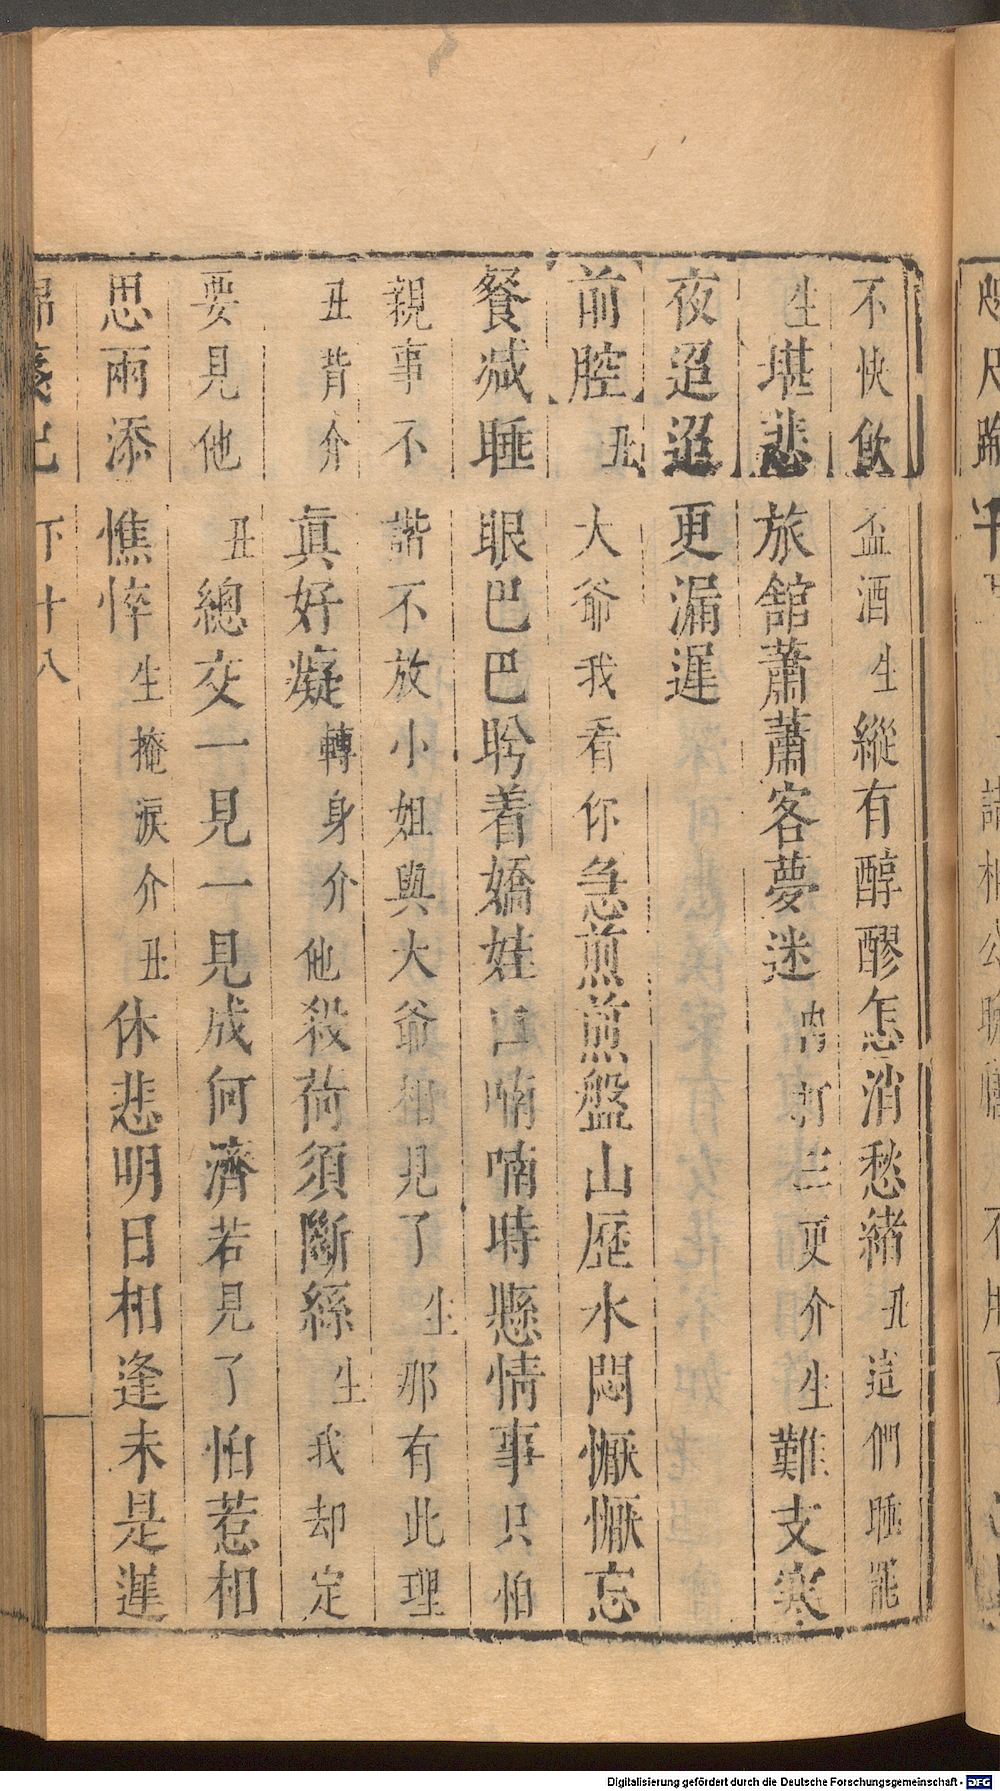 不快飲盃酒生縱有醇醪怎消愁緒丑這們睡罷
生堪悲旅館蕭蕭客夢迷内打三更介生難支寒
夜迢迢更漏遲
前腔丑大爺我看你急煎煎盤山歷水悶懨懨忘
餐减睡眼巴巴盻着嬌娃口喃喃時懸情事只怕
親事不諧不放小姐與大爺相見了生那有此理
丑背介真好癡轉身介他殺荷須斷絲生我却定
要見他丑總交一見一見成何濟若見了怕惹相
思雨添憔悴生掩淚介丑休悲明日相逢未是遲
下十八
Digitalisierung gefördert durch die Deutsche Forschungsgemeinschaft - DFG